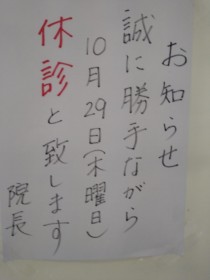 お知らせ
誠に勝手ながら
10月29日(木曜日)
休診と致します
院長